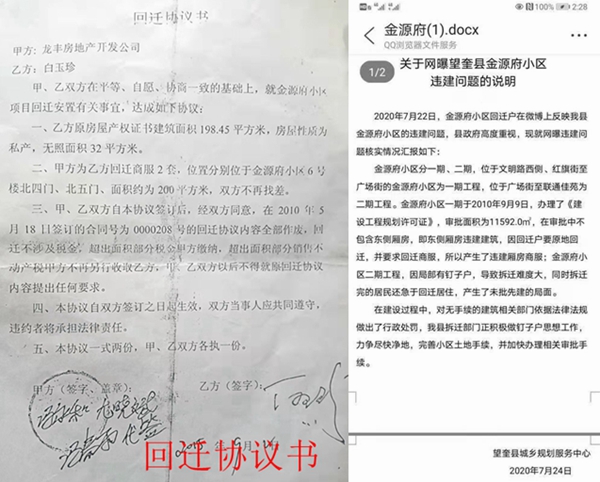 回迁协议书
甲方: 龙丰房地产开发公司
乙方: 白玉珍
甲、乙双方在平等、自愿、协商一致的基础上，就金源府小区
项目回迁安置有关事宜，达成如下协议：
一、乙方原房屋产权证书建筑面积 198.45 平方米，房屋性质为
私产，无照面积 32 平方米。
二、甲方为乙方回迁商服 2 套，位置分别位于金源府小区 6 号
楼北四门、北五门、面积约为 200 平方米，双方不再找差。
三、甲、乙双方自本协议签订后，经双方同意，在 2010 年 5
月 18 日签订的合同号为 0000208 号的回迁协议内容全部作废，回
迁不涉及税金，超出面积部分税金甲方缴纳，超出面积部分销售不
动产税甲方不再另行收取乙方，甲、乙双方以后不得就原回迁协议
内容提出任何要求。
四、本协议自双方签订之日起生效，双方当事人应共同遵守，
违约者将承担法律责任。
五、本协议一式两份，甲、乙双方各执一份。
甲方（签字、盖章）：
乙方（签字）：
回迁协议书
100%
2:28
金源府(1).docx
QQ浏览器文件服务
关于网曝望奎县金源府小区
1/2
违建问题的说明
2020年7月22日，金源府小区回迁户在微博上反映我县
金源府小区的违建问题，县政府高度重视，现就网曝违建问
题核实情况汇报如下：
金源府小区分一期、二期，位于文明路西侧、红旗街至
广场街的金源府小区为一期工程，位于广场街至联通佳苑为
二期工程。金源府小区一期于2010年9月9日，办理了《建
设工程规划许可证》，审批面积为11592.0㎡，在审批中不
包含东侧厢房，即东侧厢房违建建筑，因回迁户要原地回
迁，并要求回迁商服，所以产生了违建厢房商服；金源府小
区二期工程，因局部有钉子户，导致拆迁难度大，同时拆迁
完的居民还急于回迁居住，产生了未批先建的局面。
在建设过程中，对无手续的建筑相关部门依据法律法规
做出了行政处罚，我县拆迁部门正积极做钉子户思想工作，
力争尽快净地，完善小区土地手续，并加快办理相关审批手
续。
望奎县城乡规划服务中心
2020年7月24日